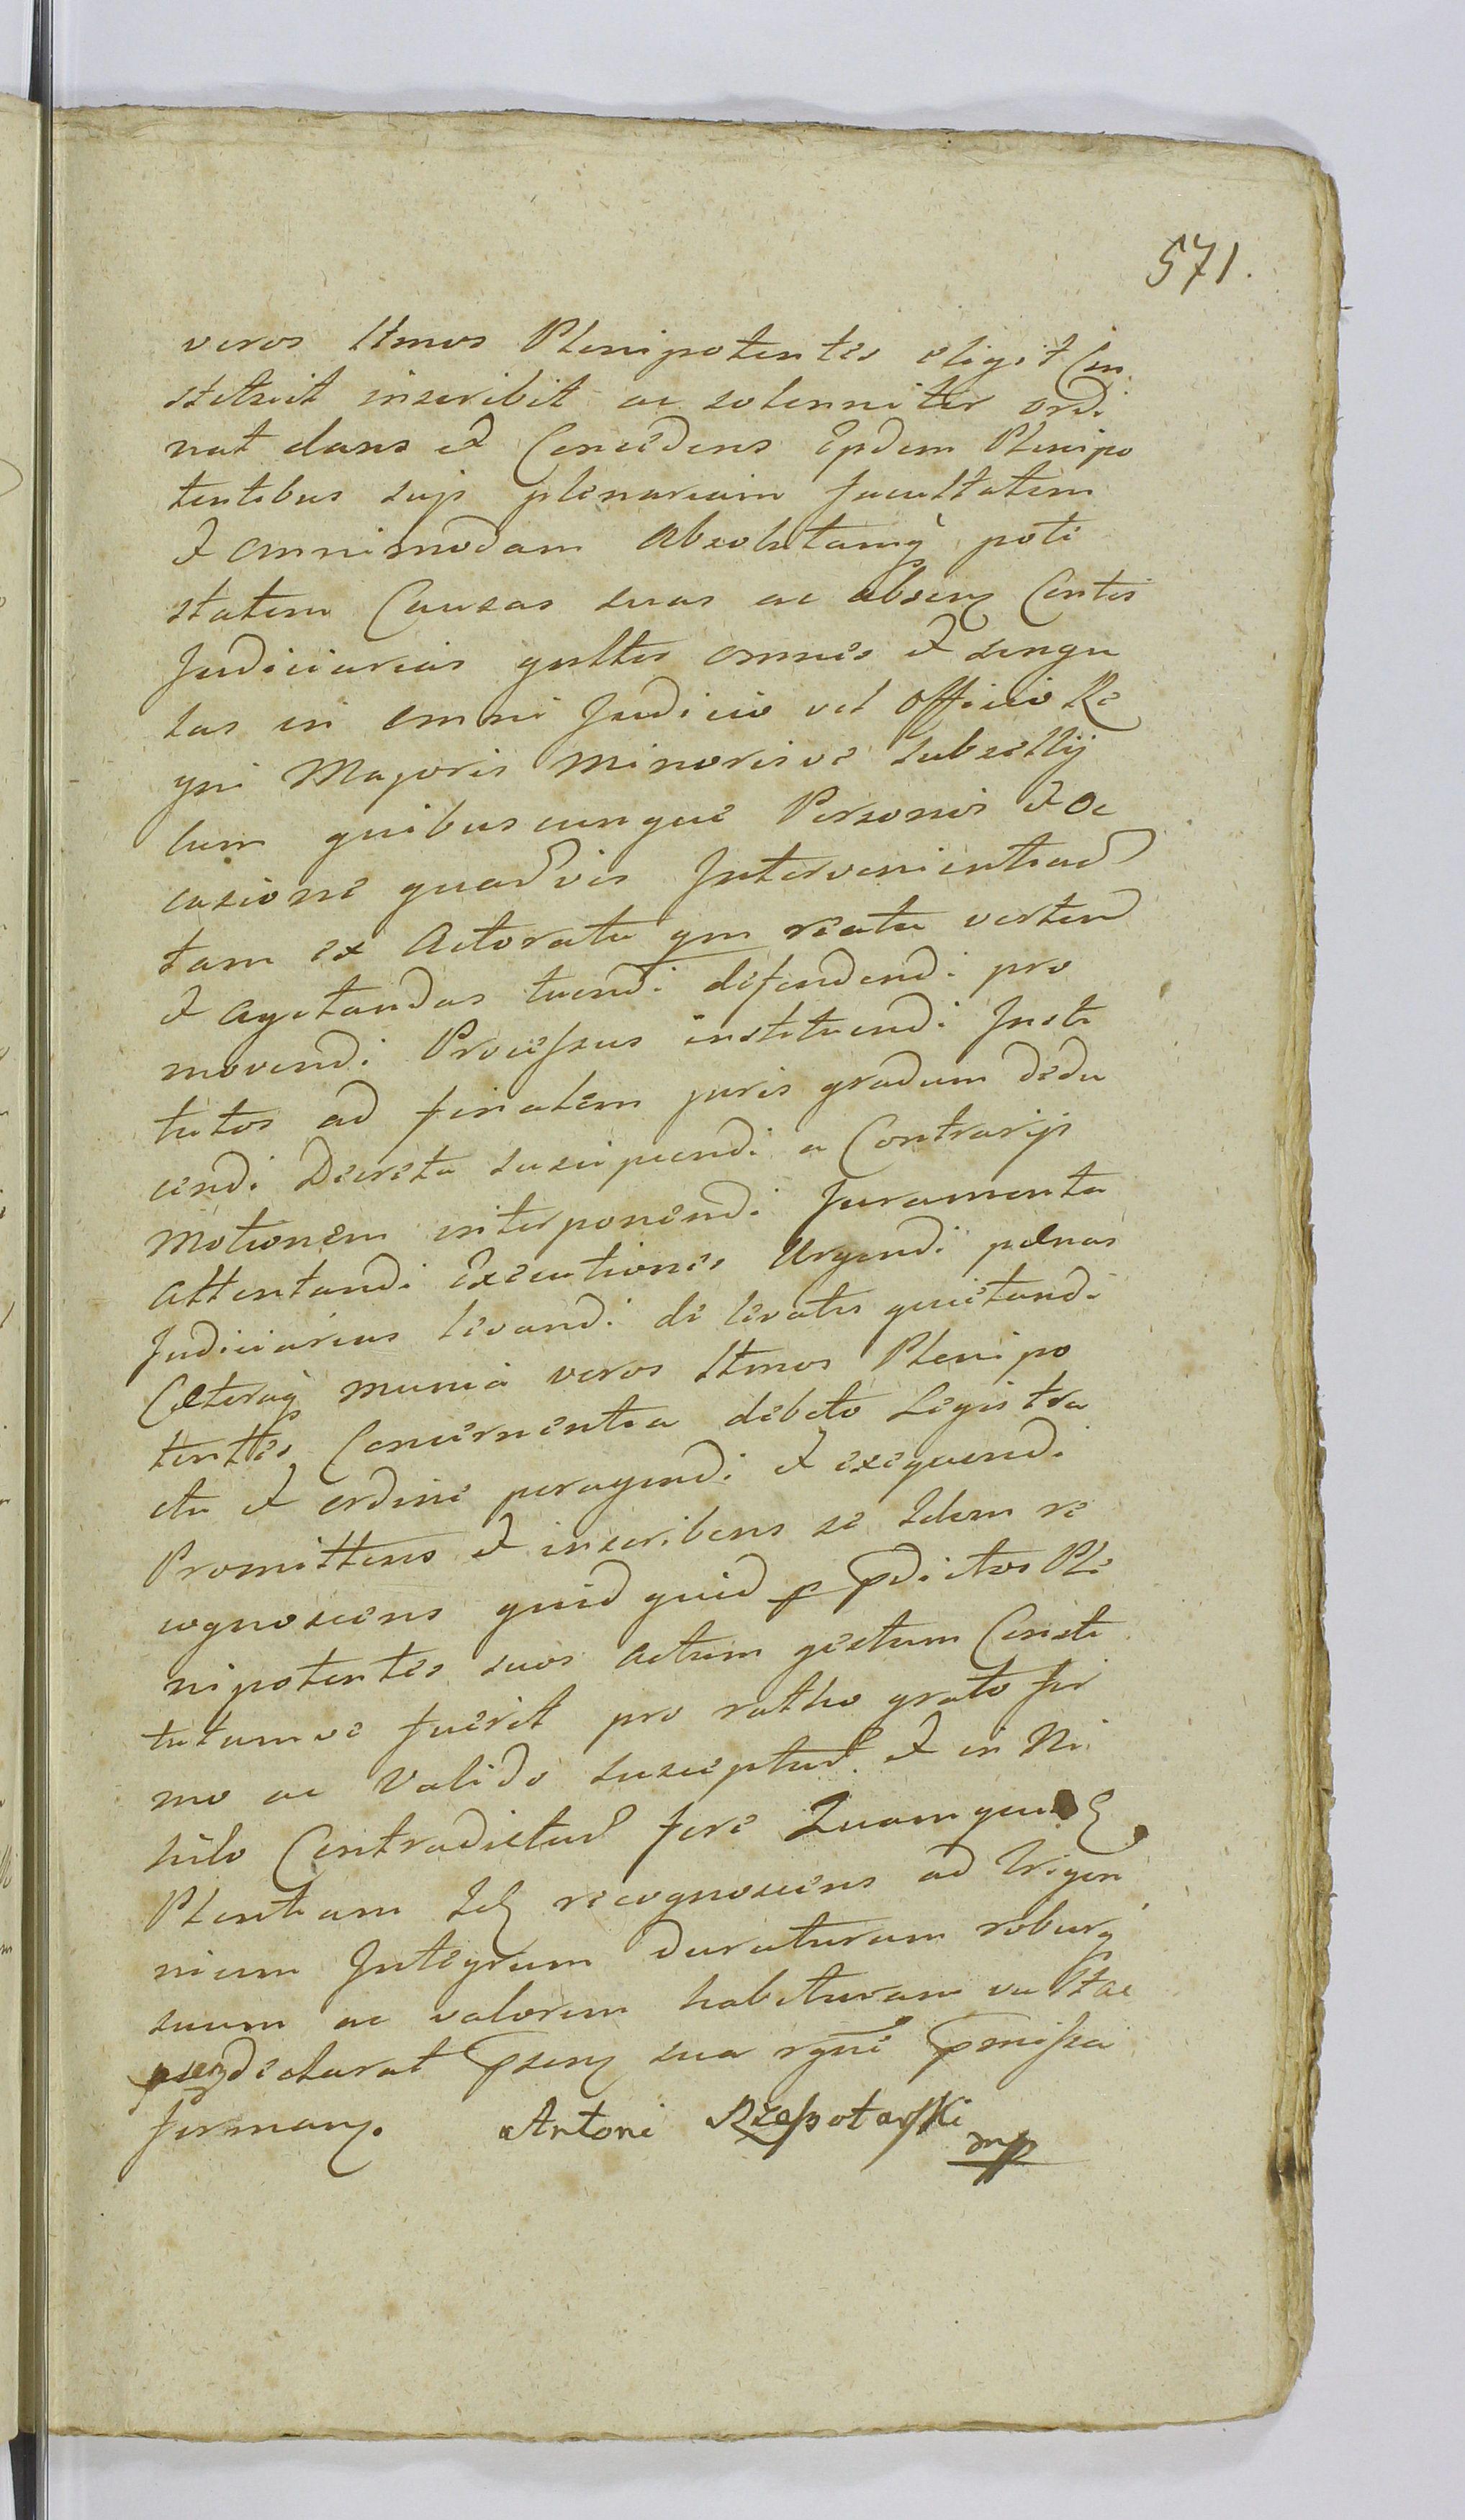 571.
veros ltmos Plenipotentes eligit Con
stituit inscribit ac solenniter ordi
nat dans et Concedens Eysdem Plenipo
tentibus suis plenariam facultatem
et omnimodam absolutamq pote
statem Causas suas ac absenq Contes
Judiciarias qultes omnes et singu
las in omni Judicio vel Officio Re
gni Majoris Minorisve Subsellij
cum quibuscunque Personis et oc
casione quadvis Intervenientiad
tam ex Actoratu qm reatu vertend
et agitandas tuendi defendendi pro
movendi Processus instituendi Insti
tutos ad finalem juris gradum dedu
cendi Decreta suscipiendi a Contrarijs
Motionem interponendi Juramenta
attentandi Executiones Urgendi pænas
Judiciarias levandi de levatis quietandi
Cæteraq munia veros ltmos Plenipo
tenttes Concernentia debito Legis tra
ctu et ordine peragendi et exequendi
Promittens et inscribens se Idem re
cognoscens quid quid p pdictos Ple
nipotentes suos actum gestum Consti
tutumve fuerit pro ratho grato fir
mo ac Valido susceptur et in Ni
hilo Contradictur fore Quamquidq
Plentiam Idq recognoscens ad Trigen
nium Integrum duraturam roburq
suum ac valorem habituram va
declarat psenq sua rgne pmissa
firmanq. Antoni Rzeszotarski
mp